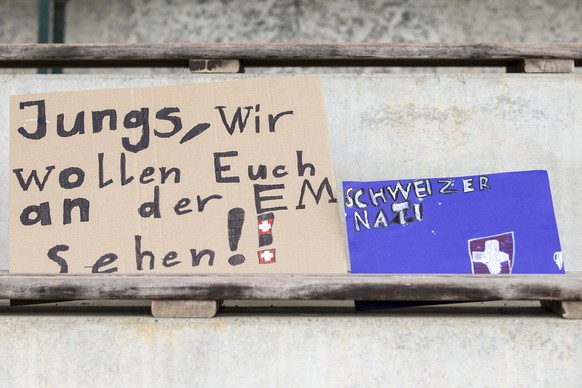 Jungs, Wir
wollen Euch
an der EM
sehen!!
SCHWEIZER
NATI